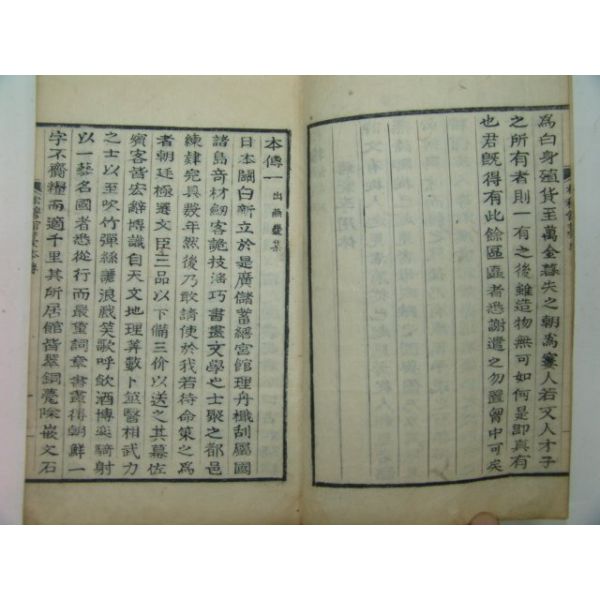 為白身殖貨至萬金暮失之朝為窶人若文人才子
之所有者則一有之後雖造物無可如何是即真有
也君既得有此餘區區者悉謝遣之勿置胷中可矣
本傳一 出燕巖集
日本關白新立於是廣儲蓄繕宮館理舟檝刮屬國
諸島奇材劒客詭技淫巧書畫文學之士聚之都邑
練肄完具數年然後乃敢請使於我若待命策之為
者朝廷極選文臣三品以下備三价以送之其幕佐
賓客皆宏辭博識自天文地理筭數卜筮醫相武力
之士以至吹竹彈絲謔浪戲笑歌呼飲酒博奕騎射
以一藝名國者悉從行而最重詞章書畫得朝鮮一
字不齎糧而適千里其所居館皆翠銅甍除嵌文石